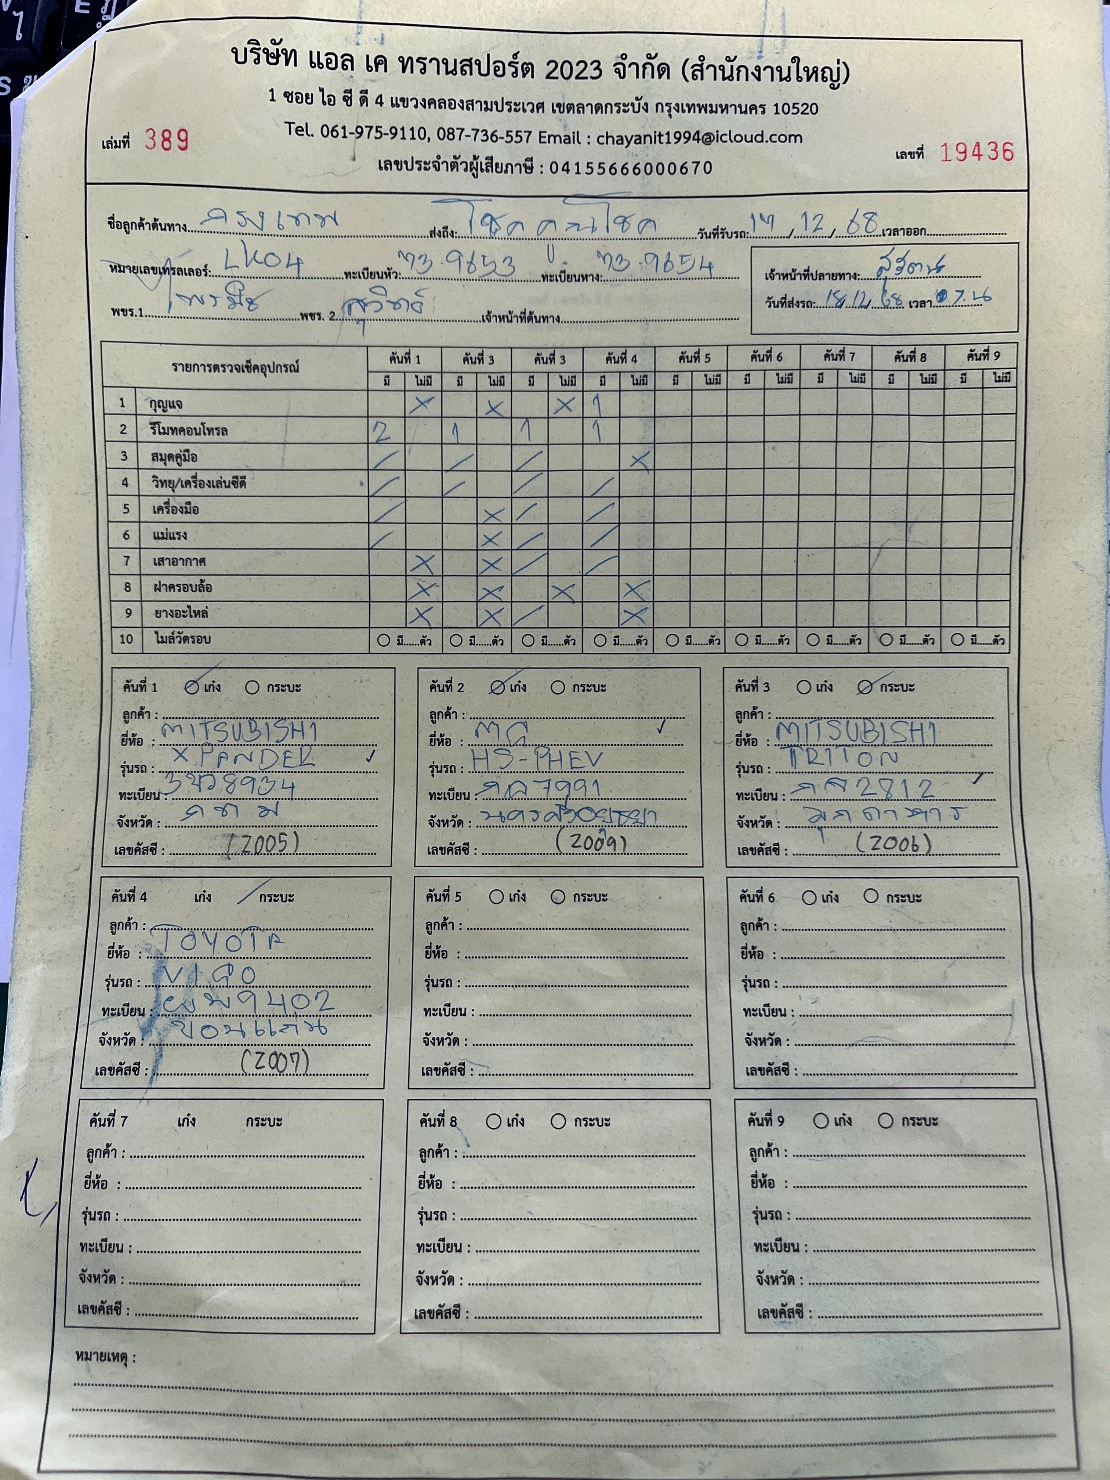 บริษัท แอล เค ทรานสปอร์ต 2023 จำกัด (สำนักงานใหญ่)
1 ซอย ไอ ซี ดี 4 แขวงคลองสามประเวศ เขตลาดกระบัง กรุงเทพมหานคร 10520
Tel. 061-975-9110, 087-736-557 Email : chayanit1994@icloud.com
เล่มที่ 389
เลขประจำตัวผู้เสียภาษี : 04155666000670
เลขที่ 19436
ชื่อลูกค้าต้นทาง ส่งถึง: โชคคูณโชค วันที่รับรถ: 17/12/68 เวลาออก
หมายเลขเทรลเลอร์: LK04 ทะเบียนหัว: 73-9653 ทะเบียนหาง: 73-9654
พขร.1 พขร. 2 เจ้าหน้าที่ต้นทาง
เจ้าหน้าที่ปลายทาง:
วันที่ส่งรถ: 18/12/68 เวลา
รายการตรวจเช็คอุปกรณ์ คันที่ 1 คันที่ 3 คันที่ 3 คันที่ 4 คันที่ 5 คันที่ 6 คันที่ 7 คันที่ 8 คันที่ 9
มี ไม่มี มี ไม่มี มี ไม่มี มี ไม่มี มี ไม่มี มี ไม่มี มี ไม่มี มี ไม่มี มี ไม่มี
1 กุญแจ × × × 1
2 รีโมทคอนโทรล 2 1 1 1
3 สมุดคู่มือ / / / ×
4 วิทยุ/เครื่องเล่นซีดี / / / /
5 เครื่องมือ / × / /
6 แม่แรง / × / /
7 เสาอากาศ × × / /
8 ฝาครอบล้อ × × × ×
9 ยางอะไหล่ × × / ×
10 ไมล์วัดรอบ มี......ตัว มี......ตัว มี......ตัว มี......ตัว มี......ตัว มี......ตัว มี......ตัว มี......ตัว มี......ตัว
คันที่ 1 เก๋ง กระบะ
ลูกค้า :
ยี่ห้อ : MITSUBISHI
รุ่นรถ : XPANDER
ทะเบียน: 8934
จังหวัด : กทม
เลขคัสซี : (2005)
คันที่ 2 เก๋ง กระบะ
ลูกค้า :
ยี่ห้อ : MG
รุ่นรถ : HS-PHEV
ทะเบียน : 7991
จังหวัด :
เลขคัสซี : (2009)
คันที่ 3 เก๋ง กระบะ
ลูกค้า :
ยี่ห้อ : MITSUBISHI
รุ่นรถ : TRITON
ทะเบียน : 2812
จังหวัด : มุกดาหาร
เลขคัสซี : (2006)
คันที่ 4 เก๋ง กระบะ
ลูกค้า :
ยี่ห้อ : TOYOTA
รุ่นรถ : VIGO
ทะเบียน : 9402
จังหวัด : ขอนแก่น
เลขคัสซี : (2007)
คันที่ 5 เก๋ง กระบะ
ลูกค้า :
ยี่ห้อ :
รุ่นรถ :
ทะเบียน :
จังหวัด :
เลขคัสซี :
คันที่ 6 เก๋ง กระบะ
ลูกค้า :
ยี่ห้อ :
รุ่นรถ :
ทะเบียน :
จังหวัด :
เลขคัสซี :
คันที่ 7 เก๋ง กระบะ
ลูกค้า :
ยี่ห้อ :
รุ่นรถ :
ทะเบียน :
จังหวัด :
เลขคัสซี :
คันที่ 8 เก๋ง กระบะ
ลูกค้า :
ยี่ห้อ :
รุ่นรถ :
ทะเบียน :
จังหวัด :
เลขคัสซี :
คันที่ 9 เก๋ง กระบะ
ลูกค้า :
ยี่ห้อ :
รุ่นรถ :
ทะเบียน :
จังหวัด :
เลขคัสซี :
หมายเหตุ :